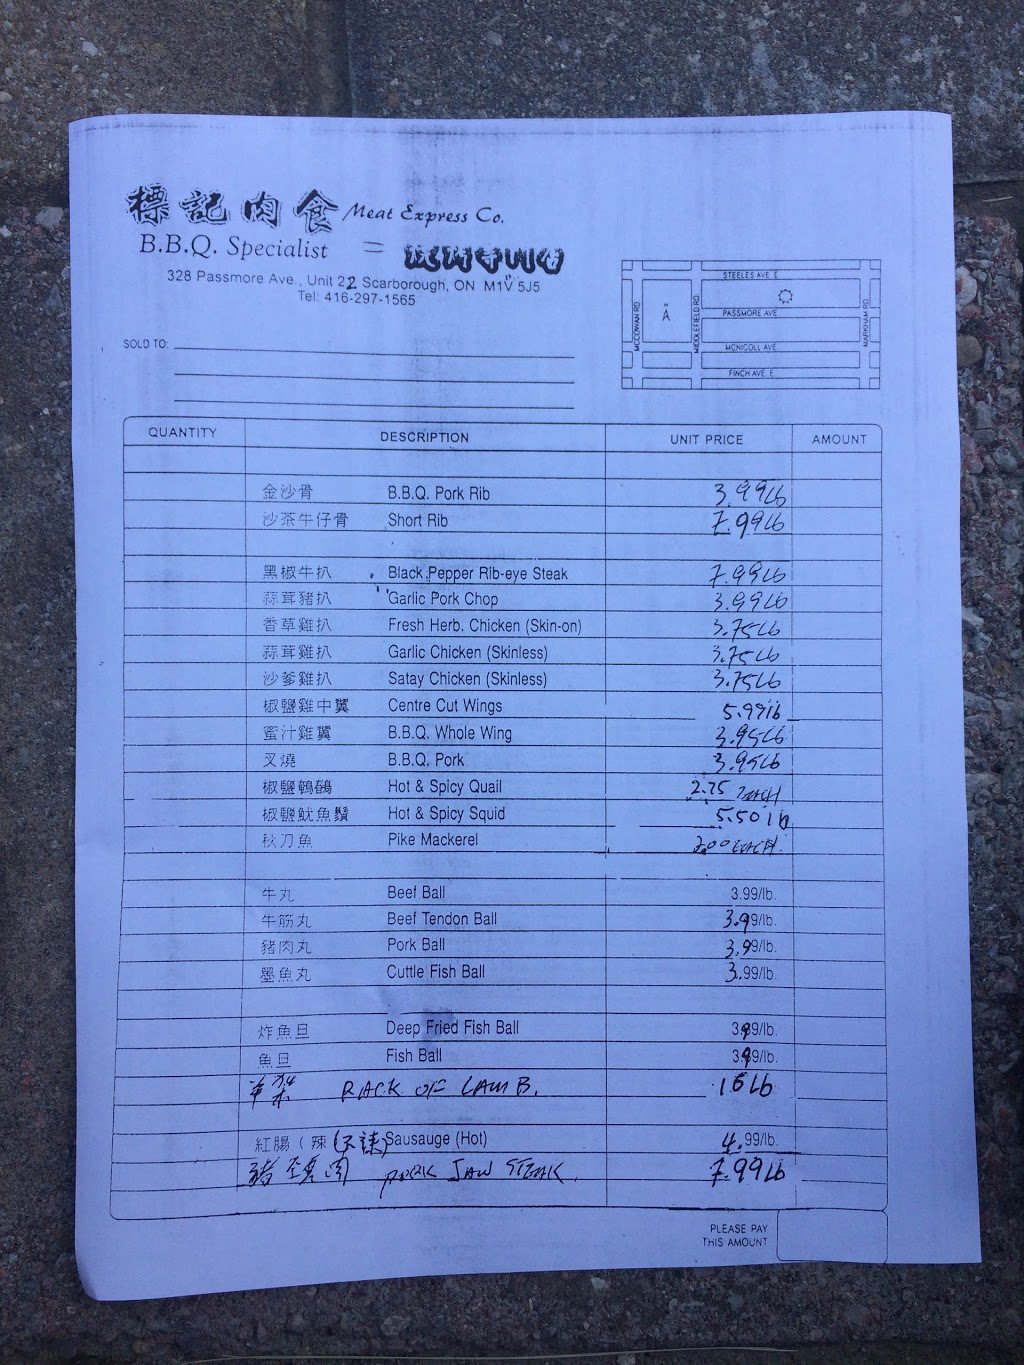 標記肉食 Meat Express Co.
B.B.Q. Specialist =
328 Passmore Ave., Unit 22 Scarborough, ON M1V 5J5
Tel: 416-297-1565
SOLD TO:
STEELES AVE. E
PASSMORE AVE
MCNICOLL AVE.
FINCH AVE. E
MCCOWAN RD.
MIDDLEFIELD RD.
MARKHAM RD.
QUANTITY DESCRIPTION UNIT PRICE AMOUNT
金沙骨 B.B.Q. Pork Rib 3.99Lb
沙茶牛仔骨 Short Rib 7.99Lb
黑椒牛扒 Black Pepper Rib-eye Steak 7.99Lb
蒜茸豬扒 Garlic Pork Chop 3.99Lb
香草雞扒 Fresh Herb. Chicken (Skin-on) 3.75Lb
蒜茸雞扒 Garlic Chicken (Skinless) 3.75Lb
沙爹雞扒 Satay Chicken (Skinless) 3.75Lb
椒鹽雞中翼 Centre Cut Wings 5.99lb
蜜汁雞翼 B.B.Q. Whole Wing 3.95Lb
叉燒 B.B.Q. Pork 3.95Lb
椒鹽鵪鶉 Hot & Spicy Quail 2.75 EACH
椒鹽魷魚鬚 Hot & Spicy Squid 5.50lb
秋刀魚 Pike Mackerel EACH.
牛丸 Beef Ball 3.99/lb.
牛筋丸 Beef Tendon Ball 3.99/lb.
豬肉丸 Pork Ball 3.99/lb.
墨魚丸 Cuttle Fish Ball 3.99/lb.
炸魚旦 Deep Fried Fish Ball 3.99/lb.
魚旦 Fish Ball 3.99/lb.
RACK OF LAMB. Lb
紅腸 (辣 Sausauge (Hot) 4.99/lb.
豬頸肉 PORK JAW STEAK. 7.99Lb
PLEASE PAY
THIS AMOUNT